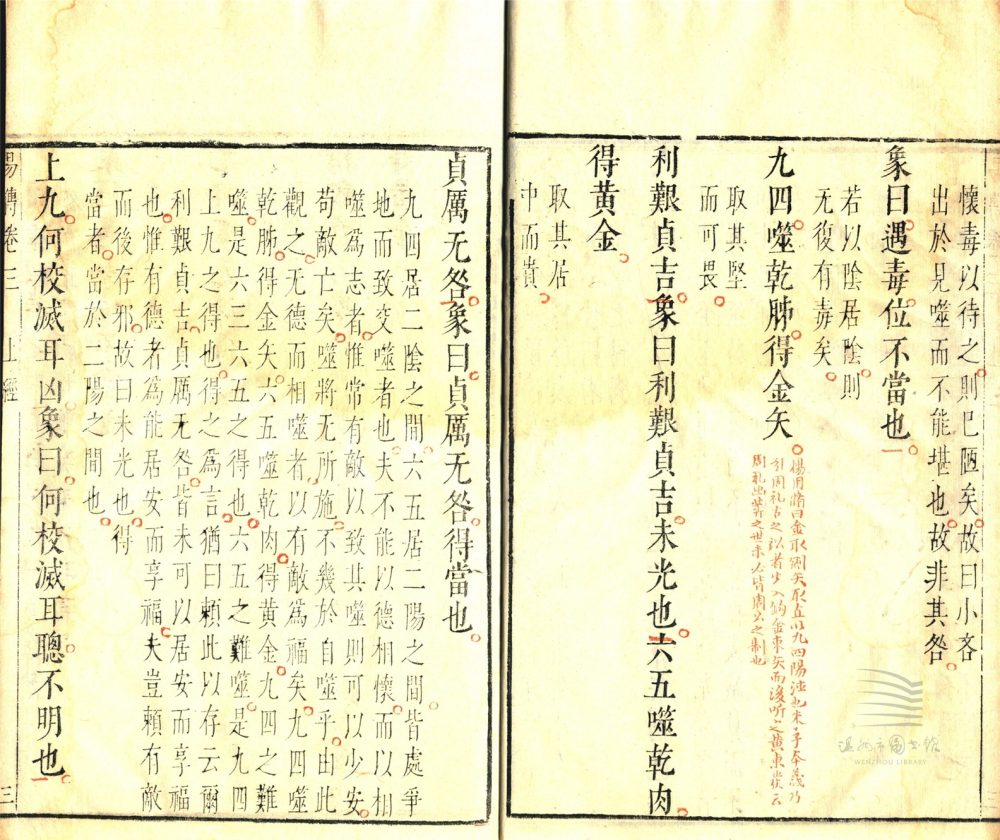 懷毒以待之則已陋矣故曰小吝
出於見噬而不能堪也故非其咎
象曰遇毒位不當也
若以陰居陰則
无復有毒矣
九四噬乾胏得金矢
楊用脩曰金取剛矢取直以九四陽德也朱子本義乃
引周礼古之訟者先入鈞金束矢而後聽之黃東發云
周礼出
取其堅
而可畏
利艱貞吉象曰利艱貞吉未光也六五噬乾肉
得黃金
取其居
中而貴
貞厲无咎象曰貞厲无咎得當也
九四居二陰之間六五居二陽之間皆處爭
地而致交噬者也夫不能以德相懷而以相
噬爲志者惟常有敵以致其噬則可以少安
苟敵亡矣噬將无所施不幾於自噬乎由此
觀之无德而相噬者以有敵爲福矣九四噬
乾胏得金矢六五噬乾肉得黃金九四之難
噬是六三六五之得也六五之難噬是九四
上九之得也得之爲言猶曰賴此以存云爾
利艱貞吉貞厲无咎皆未可以居安而享福
也惟有德者爲能居安而享福夫豈賴有敵
而後存邪故曰未光也得
當者當於二陽之間也
上九何校滅耳凶象曰何校滅耳聰不明也
易傳卷三 上經 三
溫州市圖書館
WENZHOU LIBRARY